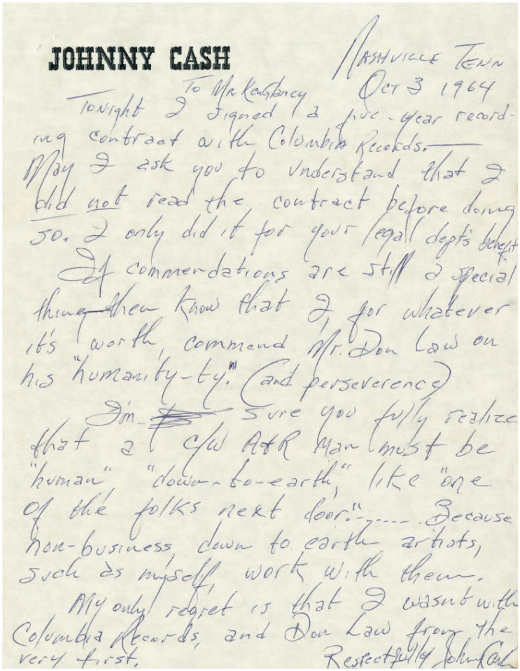 JOHNNY CASH
Nashville Tenn
Oct 3 1964
To Mr.
Tonight I signed a five-year record-
ing contract with Columbia Records.
May I ask you to understand that I
did not read the contract before doing
so. I only did it for your legal dept's benefit
If commendations are still a special
thing—then know that I, for whatever
it's worth, commend Mr. Don Law on
his "humanity-ty." (and perseverence)
I'm sure you fully realize
that a c/w A&R man must be
"human" "down-to-earth", like "one
of the folks next door."...... Because
non-business, down to earth artists,
such as myself, work with them.
My only regret is that I wasn't with
Columbia Records, and Don Law from the
very first.
Respectfully Johnny Cash